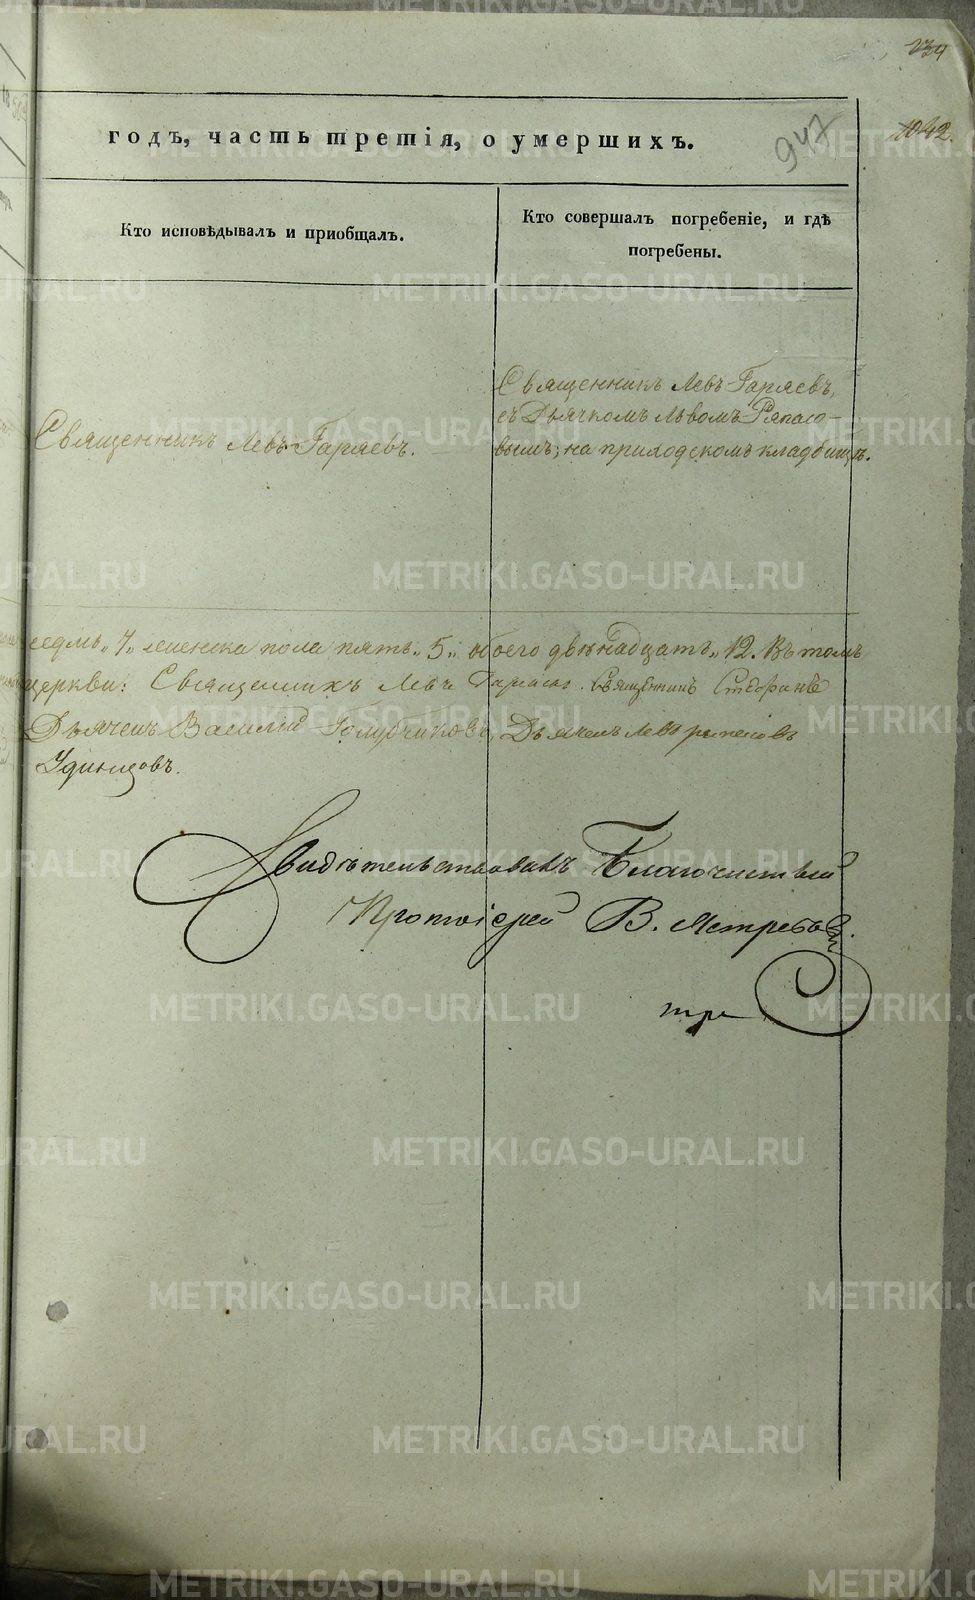 234
1042.
947
годъ, часть третія, о умершихъ.
Кто исповѣдывалъ и приобщалъ.
Кто совершалъ погребеніе, и гдѣ
погребены.
Священникъ Левъ Гаряевъ.
Священникъ Левъ Гаряевъ,
съ Дьячкомъ Львомъ
вымъ; на приходскомъ кладбищѣ.
седмь „7„ женска пола пять „5„ обоего двѣнадцать „12. Въ томъ
церкви: Священникъ Левъ Гаряевъ. Священникъ Стефанъ
Дьячекъ Василій Голубчиковъ, Дьячекъ Левъ
Удинцовъ.
Свидѣтельствовалъ Благочинный
Протоіерей В. Ястребовъ.
METRIKI.GASO-URAL.RU